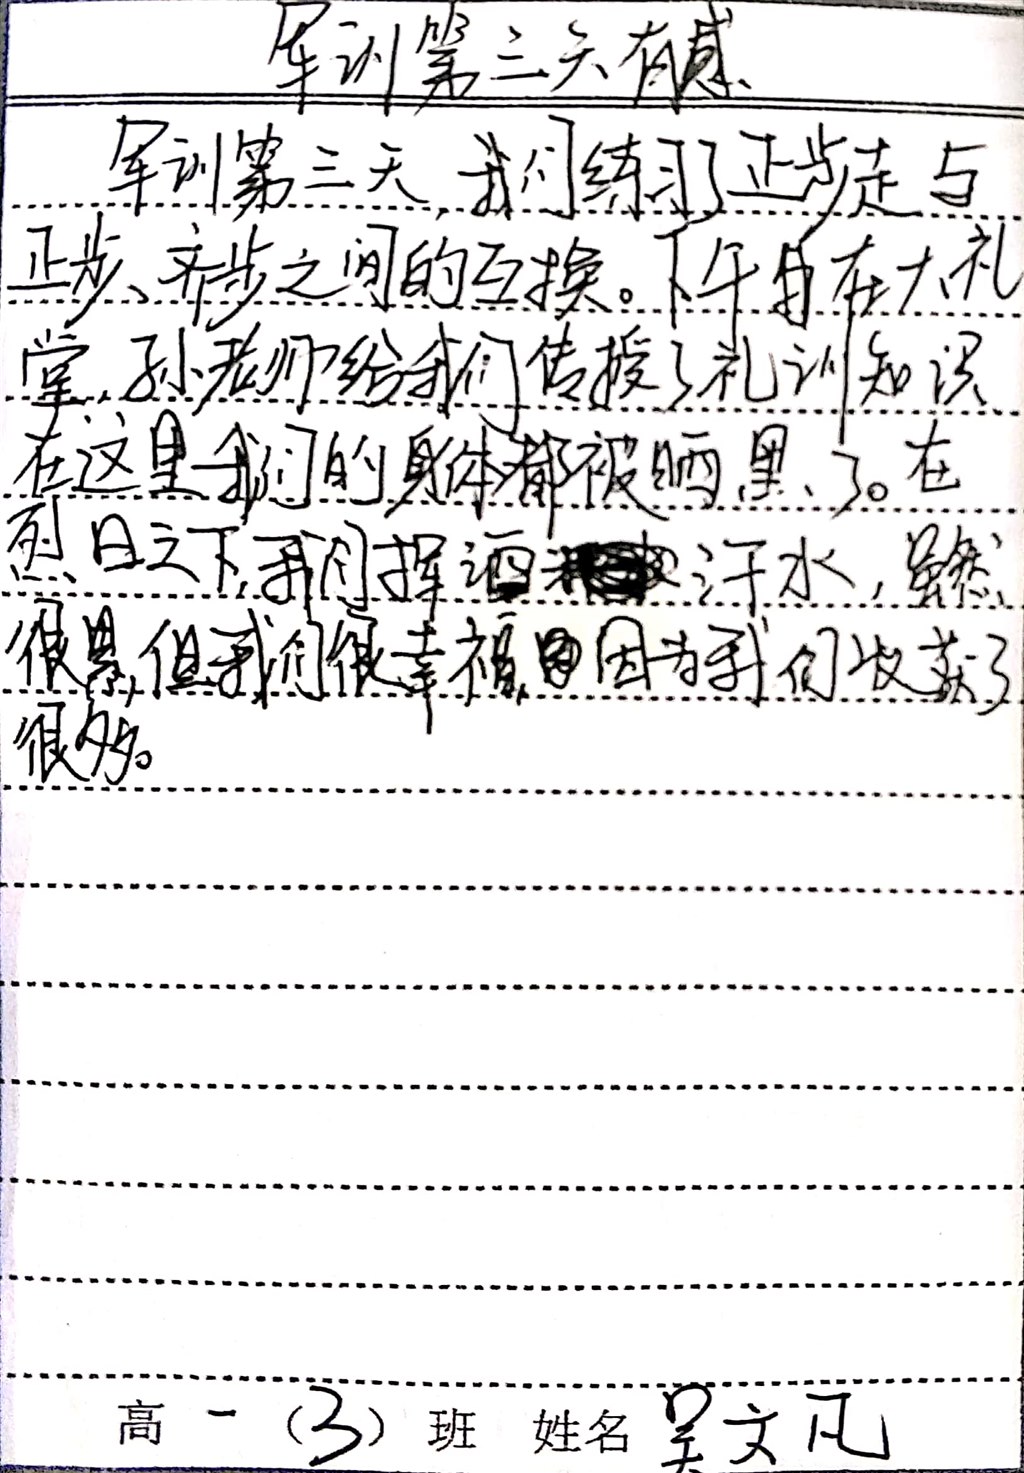 军训第三天有感
军训第三天,我们练习了正步走与
正步、齐步之间的互换。下午在大礼
堂,孙老师给我们传授了礼训知识
在这里我们的身体都被晒黑了。在
烈日之下,我们挥洒汗水,虽然
很累,但我们很幸福,因为我们收获了
很多。
高一(3)班 姓名 吴文凡